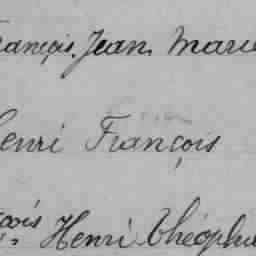 François Jean Marie
Henri François
çois Henri Théophile